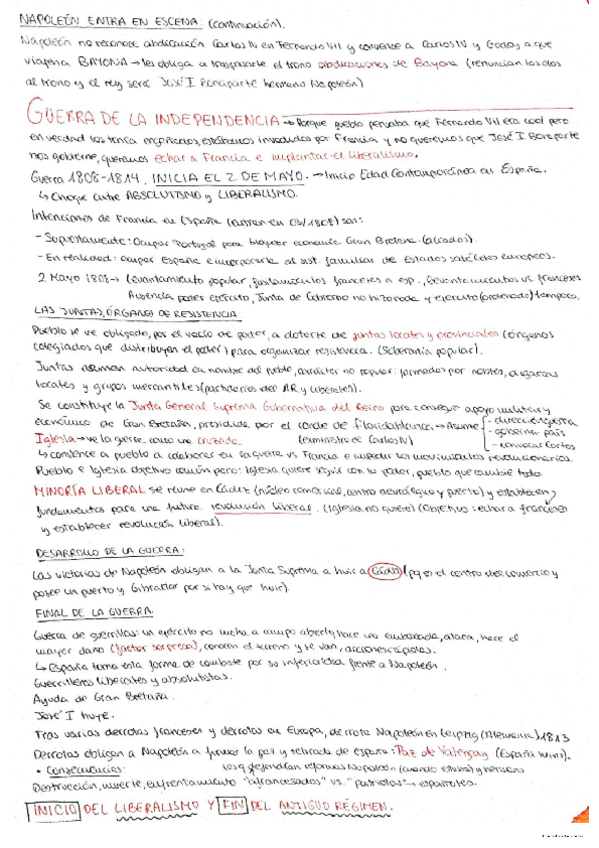 NAPOLEÓN ENTRA EN ESCENA: (continuación).
Napoleón no reconoce abdicación Carlos IV en Fernando VII y convence a Carlos IV y Godoy a que
viajen a BAYONA → les obliga a traspasarle el trono abdicaciones de Bayona (renuncian los dos
al trono y el rey será José I Bonaparte hermano Napoleón)
GUERRA DE LA INDEPENDENCIA → Porque pueblo pensaba que Fernando VII era cool pero
en verdad los tenía engañados, estábamos invadidos por Francia y no queremos que José I Bonaparte
nos gobierne, queremos echar a Francia e implantar el liberalismo.
Guerra 1808-1814, INICIA EL 2 DE MAYO. → Inicio Edad Contemporánea en España.
↳ Choque entre ABSOLUTISMO y LIBERALISMO.
Intenciones de Francia en España (entran en 03/1808) son:
- Supuestamente: Ocupar Portugal para bloquear economía Gran Bretaña. (aliados).
- En realidad: ocupar España e incorporarla al sist. familiar de Estados satélites europeos.
2 Mayo 1808 → (levantamiento popular, fusilamientos franceses a esp., levantamientos vs. franceses
Ausencia poder ejército, Junta de Gobierno no hizo nada y ejército (ordenado) tampoco.
LAS JUNTAS, ÓRGANOS DE RESISTENCIA
Pueblo se ve obligado, por el vacío de poder, a dotarse de juntas locales y provinciales (órganos
colegiados que distribuyen el poder) para organizar resistencia. (Soberanía popular).
Juntas asumen autoridad en nombre del pueblo, carácter no popular: formados por nobles, oligarcas
locales y grupos mercantiles (partidarios del AR y liberales).
Se constituye la Junta General Suprema Gubernativa del Reino para conseguir apoyo militar y
económico de Gran Bretaña, presidida por el conde de Floridablanca → Asume - dirección guerra
- gobierna país
- convocar Cortes
Iglesia → ve la guerra como una cruzada (exministro de Carlos IV)
↳ convence a pueblo a colaborar en la guerra vs Francia e impedir los movimientos revolucionarios.
Pueblo e Iglesia objetivo común pero: Iglesia quiere seguir con su poder, pueblo que cambie todo.
MINORÍA LIBERAL se reúne en Cádiz (núcleo comercial, centro neurálgico y puerto) y establecen
fundamentos para una futura revolución liberal. (Iglesia no quiere) (Objetivo: echar a franceses
y establecer revolución liberal).
DESARROLLO DE LA GUERRA:
Las victorias de Napoleón obligan a la Junta Suprema a huir a Cádiz (pq es el centro del comercio y
posee un puerto y Gibraltar por si hay que huir).
FINAL DE LA GUERRA:
Guerra de guerrillas: un ejército no lucha a campo abierto, hace una emboscada, ataca, hace el
mayor daño (factor sorpresa), conocen el terreno y se van, acciones rápidas.
↳ España toma esta forma de combate por su inferioridad frente a Napoleón.
Guerrilleros liberales y absolutistas.
Ayuda de Gran Bretaña.
José I huye.
Tras varias derrotas franceses y derrotas en Europa, derrota Napoleón en Leipzig (Alemania) 1813
Derrotas obligan a Napoleón a firmar la paz y retirada de España: Paz de Valençay (España wins).
• Consecuencias: los q defendían reformas Napoleón y hermano
Destrucción, muerte, enfrentamiento "afrancesados" vs. "patriotas" → españoles.
INICIO DEL LIBERALISMO Y FIN DEL ANTIGUO RÉGIMEN.